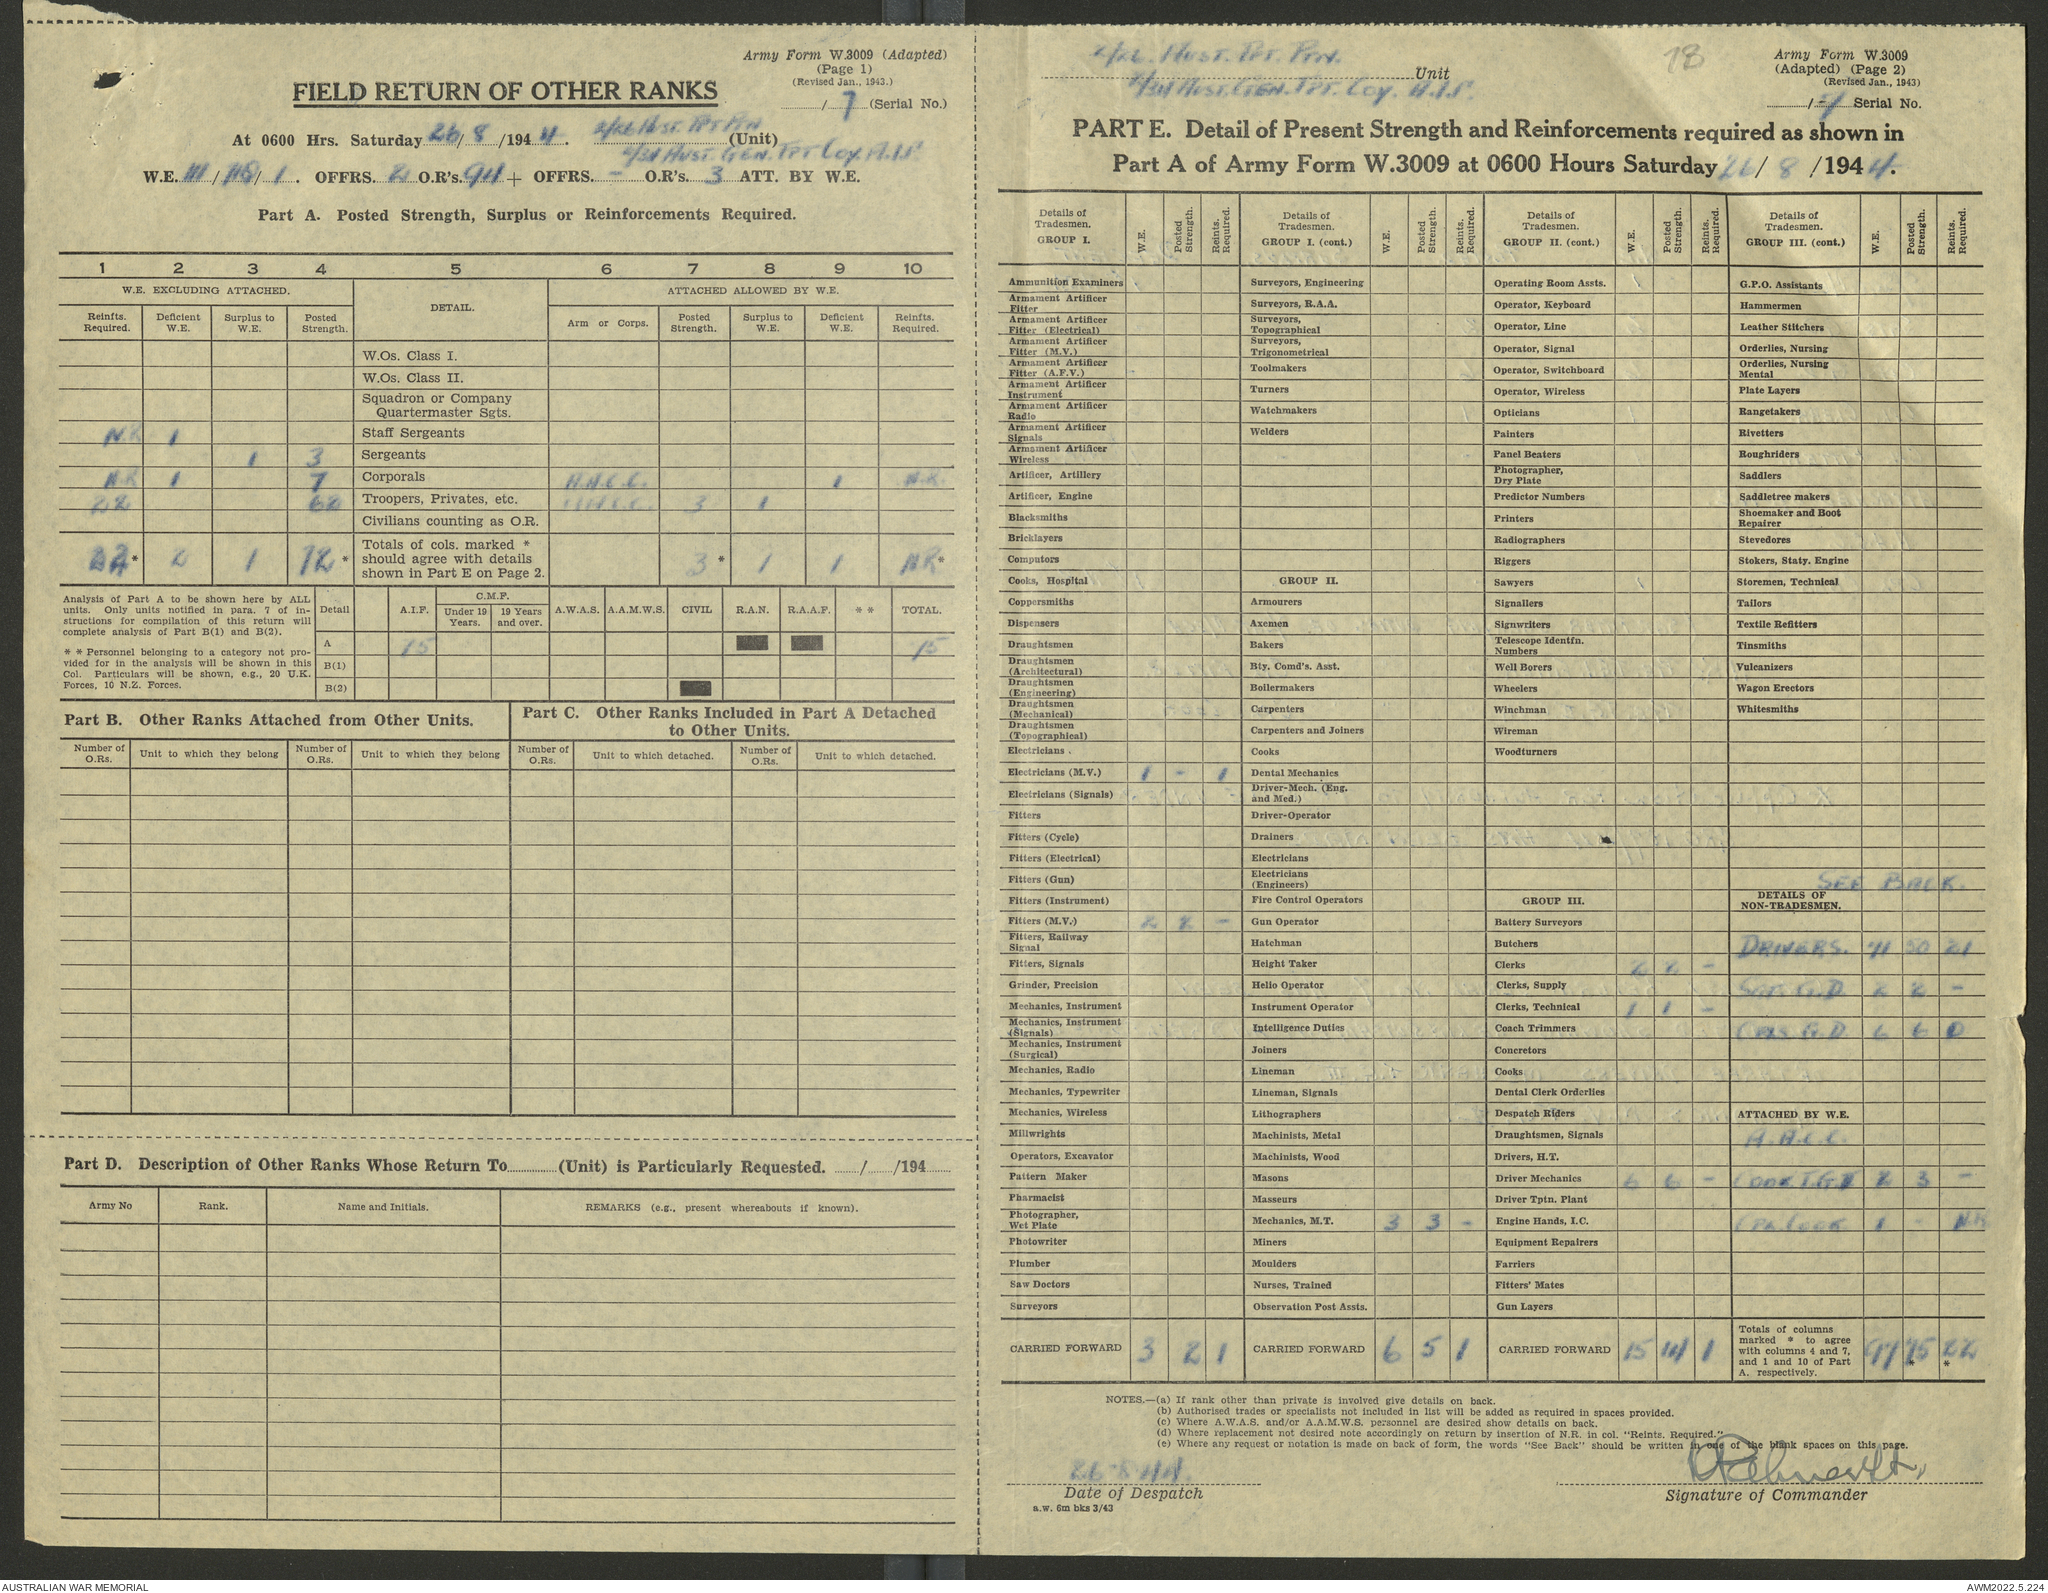 Army Form W.3009 (Adapted)
(Page 1)
(Revised Jan., 1943.)
/ 7 (Serial No.)
FIELD RETURN OF OTHER RANKS
At 0600 Hrs. Saturday 26/8/1944. 2/26 Aust. Tpt Pln (Unit)
Aust. Gen. Tpt Coy A.I.F.
W.E. III/ / 1. OFFRS. 2 O.R's. 94 + OFFRS. - O.R's. 3 ATT. BY W.E.
Part A. Posted Strength, Surplus or Reinforcements Required.
1 2 3 4 5 6 7 8 9 10
W.E. EXCLUDING ATTACHED. DETAIL. ATTACHED ALLOWED BY W.E.
Reinfts. Required. Deficient W.E. Surplus to W.E. Posted Strength. Arm or Corps. Posted Strength. Surplus to W.E. Deficient W.E. Reinfts. Required.
W.Os. Class I.
W.Os. Class II.
Squadron or Company
Quartermaster Sgts.
N.R 1 Staff Sergeants
1 3 Sergeants
N.R 1 7 Corporals A.A.C.C. 1 N.R.
22 62 Troopers, Privates, etc. 3 1
Civilians counting as O.R.
22* 2 1 72* Totals of cols. marked * should agree with details shown in Part E on Page 2. 3* 1 1 NR*
Analysis of Part A to be shown here by ALL
units. Only units notified in para. 7 of in-
structions for compilation of this return will
complete analysis of Part B(1) and B(2).
* * Personnel belonging to a category not pro-
vided for in the analysis will be shown in this
Col. Particulars will be shown, e.g., 20 U.K.
Forces, 10 N.Z. Forces.
Detail A.I.F. C.M.F. Under 19 Years. 19 Years and over. A.W.A.S. A.A.M.W.S. CIVIL R.A.N. R.A.A.F. * * TOTAL.
A 75 75
B(1)
B(2)
Part B. Other Ranks Attached from Other Units.
Number of O.Rs. Unit to which they belong Number of O.Rs. Unit to which they belong
Part C. Other Ranks Included in Part A Detached
to Other Units.
Number of O.Rs. Unit to which detached. Number of O.Rs. Unit to which detached.
Part D. Description of Other Ranks Whose Return To (Unit) is Particularly Requested. / /194
Army No Rank. Name and Initials. REMARKS (e.g., present whereabouts if known).
2/26. Aust. Tpt. Pln.
Unit
Aust. Gen. Tpt. Coy. A.I.F.
78
Army Form W.3009
(Adapted) (Page 2)
(Revised Jan., 1943)
/ 7 Serial No.
PART E. Detail of Present Strength and Reinforcements required as shown in
Part A of Army Form W.3009 at 0600 Hours Saturday 26/ 8 /1944.
Details of Tradesmen. GROUP I. W.E. Posted Strength. Reints. Required.
Ammunition Examiners
Armament Artificer Fitter
Armament Artificer Fitter (Electrical)
Armament Artificer Fitter (M.V.)
Armament Artificer Fitter (A.F.V.)
Armament Artificer Instrument
Armament Artificer Radio
Armament Artificer Signals
Armament Artificer Wireless
Artificer, Artillery
Artificer, Engine
Blacksmiths
Bricklayers
Computors
Cooks, Hospital
Coppersmiths
Dispensers
Draughtsmen
Draughtsmen (Architectural)
Draughtsmen (Engineering)
Draughtsmen (Mechanical)
Draughtsmen (Topographical)
Electricians
Electricians (M.V.) 1 - 1
Electricians (Signals)
Fitters
Fitters (Cycle)
Fitters (Electrical)
Fitters (Gun)
Fitters (Instrument)
Fitters (M.V.) 2 2 -
Fitters, Railway Signal
Fitters, Signals
Grinder, Precision
Mechanics, Instrument
Mechanics, Instrument (Signals)
Mechanics, Instrument (Surgical)
Mechanics, Radio
Mechanics, Typewriter
Mechanics, Wireless
Millwrights
Operators, Excavator
Pattern Maker
Pharmacist
Photographer, Wet Plate
Photowriter
Plumber
Saw Doctors
Surveyors
CARRIED FORWARD 3 2 1
Details of Tradesmen. GROUP I. (cont.) W.E. Posted Strength. Reints. Required.
Surveyors, Engineering
Surveyors, R.A.A.
Surveyors, Topographical
Surveyors, Trigonometrical
Toolmakers
Turners
Watchmakers
Welders
GROUP II.
Armourers
Axemen
Bakers
Bty. Comd's. Asst.
Boilermakers
Carpenters
Carpenters and Joiners
Cooks
Dental Mechanics
Driver-Mech. (Eng. and Med.)
Driver-Operator
Drainers
Electricians
Electricians (Engineers)
Fire Control Operators
Gun Operator
Hatchman
Height Taker
Helio Operator
Instrument Operator
Intelligence Duties
Joiners
Lineman
Lineman, Signals
Lithographers
Machinists, Metal
Machinists, Wood
Masons
Masseurs
Mechanics, M.T. 3 3 -
Miners
Moulders
Nurses, Trained
Observation Post Assts.
CARRIED FORWARD 6 5 1
Details of Tradesmen. GROUP II. (cont.) W.E. Posted Strength. Reints. Required.
Operating Room Assts.
Operator, Keyboard
Operator, Line
Operator, Signal
Operator, Switchboard
Operator, Wireless
Opticians
Painters
Panel Beaters
Photographer, Dry Plate
Predictor Numbers
Printers
Radiographers
Riggers
Sawyers
Signallers
Signwriters
Telescope Identfn. Numbers
Well Borers
Wheelers
Winchman
Wireman
Woodturners
GROUP III.
Battery Surveyors
Butchers
Clerks 2 2 -
Clerks, Supply
Clerks, Technical 1 1 -
Coach Trimmers
Concretors
Cooks
Dental Clerk Orderlies
Despatch Riders
Draughtsmen, Signals
Drivers, H.T.
Driver Mechanics 6 6 -
Driver Tptn. Plant
Engine Hands, I.C.
Equipment Repairers
Farriers
Fitters' Mates
Gun Layers
CARRIED FORWARD 15 14 1
Details of Tradesmen. GROUP III. (cont.) W.E. Posted Strength. Reints. Required.
G.P.O. Assistants
Hammermen
Leather Stitchers
Orderlies, Nursing
Orderlies, Nursing Mental
Plate Layers
Rangetakers
Rivetters
Roughriders
Saddlers
Saddletree makers
Shoemaker and Boot Repairer
Stevedores
Stokers, Staty. Engine
Storemen, Technical
Tailors
Textile Refitters
Tinsmiths
Vulcanizers
Wagon Erectors
Whitesmiths
SEE BACK.
DETAILS OF NON-TRADESMEN.
DRIVERS. 71 50 21
Sgt. G.D. 2 2 -
Cpls G.D 6 6 0
ATTACHED BY W.E.
A.A.C.C.
Cook 2 3 -
Cpl. Cook 1 - N.R
Totals of columns marked * to agree with columns 4 and 7, and 1 and 10 of Part A. respectively. 97 75* 22*
NOTES.—(a) If rank other than private is involved give details on back.
(b) Authorised trades or specialists not included in list will be added as required in spaces provided.
(c) Where A.W.A.S. and/or A.A.M.W.S. personnel are desired show details on back.
(d) Where replacement not desired note accordingly on return by insertion of N.R. in col. "Reints. Required."
(e) Where any request or notation is made on back of form, the words "See Back" should be written in one of the blank spaces on this page.
26-8-44.
Date of Despatch
a.w. 6m bks 3/43
Signature of Commander
AUSTRALIAN WAR MEMORIAL
AWM2022.5.224